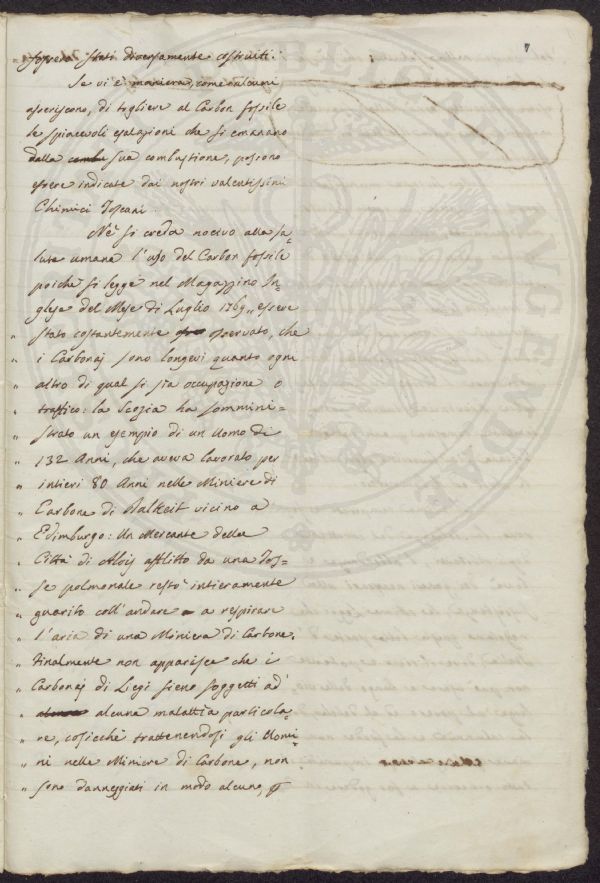 7
fossero stati diversamente costruiti.
Se vi è maniera, come alcuni
asseriscono, di togliere al Carbon fossile
le spiacevoli esalazioni che si emanano
dalla sua combustione, possono
essere indicate dai nostri valentissimi
Chimici Toscani.
Nè si creda nocivo alla sa-
lute umana l'uso del Carbon fossile
poichè si legge nel Magazzino In-
glese del Mese di Luglio 1769 „ essere
„ stato costantemente osservato, che
„ i Carbonaj sono longevi quanto ogni
„ altro di qual si sia occupazione o
„ traffico: la Scozia ha sommini-
„ strato un esempio di un Uomo di
„ 132 Anni, che aveva lavorato per
„ intieri 80 Anni nelle Miniere di
„ Carbone di Dalkeit vicino a
„ Edimburgo: Un Mercante della
„ Città di afflitto da una Tos-
„ se polmonale restò intieramente
„ guarito coll'andare a respirare
„ l'aria di una Miniera di Carbone.
„ Finalmente non apparisce che i
„ Carbonaj di Liegi sieno soggetti ad
„ alcuna malattia particola-
„ re, cosicchè trattenendosi gli Uomi-
„ ni nelle Miniere di Carbone, non
„ sono danneggiati in modo alcuno,